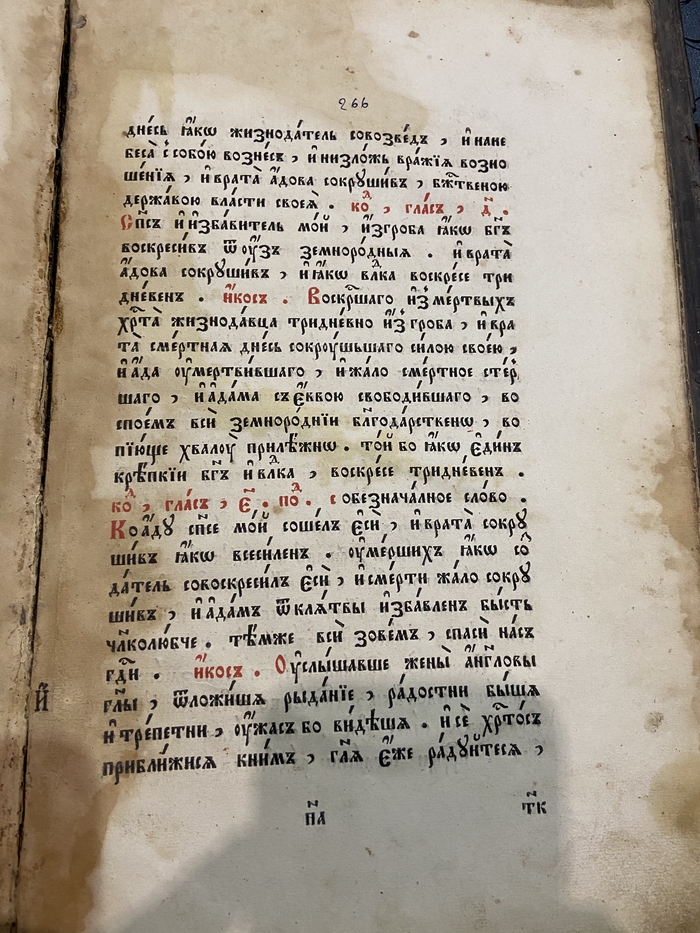 266
дне́сь ꙗ҆́кѡ жизнода́тель совозве́дъ , и҆ на не
беса̀ с̾собо́ю возне́съ , и҆ низло́жъ вра́жїѧ возно
ше́нїѧ , и҆ врата̀ а҆́дова сокрꙋши́въ , бж҃твеною
держа́вою вла́сти своеѧ̀ . ко , гла́съ , д҃ .
Сп҃съ и҆ и҆зба́витель мо́й , и҆згроба ꙗ҆́кѡ бг҃ъ
воскреси́въ ѿ оу҆́зъ земноро́дныѧ . и҆ врата̀
а҆́дова сокрꙋши́въ , и҆ ꙗ҆́кѡ влⷣка воскресе три
дне́венъ . и҆́косъ . Воскр҃шаго и҆з̾ ме́ртвыхъ
хр҃та̀ жизнода́вца тридне́вно и҆з̾ гроба , и҆ вра
та̀ сме́ртнаѧ дне́сь сокроу́шьшаго си́лою свое́ю ,
и҆ а҆́да оу҆мертви́вшаго , и҆ жа́ло сме́ртное сте́р
шаго , и҆ а҆да́ма съ є҆́ввою свободи́вшаго , во
спое́мъ всѝ земноро́днїи бл҃года́рственѡ , во
пїю́ще хвалоу̀ прилѣ́жнѡ . то́й бо ꙗ҆́кѡ є҆ди́нъ
крѣ́пкїи бг҃ъ и҆ влⷣка , воскресе тридне́венъ .
коⷣ , гла́съ , є҃ . поⷣ . собезнача́лное сло́во .
Ко а҆́дꙋ сп҃се мо́й соше́лъ є҆сѝ , и҆ врата̀ сокрꙋ
ши́въ ꙗ҆́кѡ всеси́ленъ . оу҆ме́ршихъ ꙗ҆́кѡ со
да́тель совоскреси́лъ є҆сѝ , и҆ сме́рти жа́ло сокрꙋ
ши́въ , и҆ а҆да́мъ ѿ клѧ́твы и҆зба́вленъ бы́сть
чл҃колю́бче . тѣ́мже всѝ зове́мъ , спасѝ на́съ
гд҃и . и҆́косъ . Оу҆слы́шавше жены̀ а҆́нг҃ловы
гл҃ы , ѿложи́шѧ рыда́нїе , ра́достни бы́шѧ
и҆ тре́петни , оу҆́жасъ бо ви́дѣшѧ . и҆ сѐ хр҃то́съ
прибли́жисѧ кни́мъ , гл҃ѧ є҆́же ра́дꙋйтесѧ ,
н҃а
т҃к